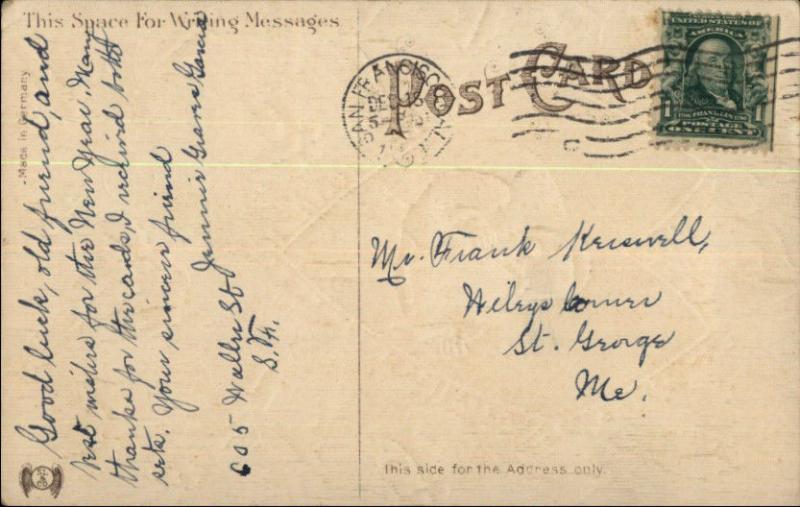 This Space For Writing Messages
Made in Germany
POST CARD
SAN FRANCISCO CAL.
DEC
UNITED STATES OF AMERICA
FRANKLIN
1 1
POSTAGE
ONE CENT
Good luck, old friend, and
best wishes for the New Year. Many
thanks for the cards, I received both
sets. Your sincere friend
Jennie Graves Garcia
605 Waller St
S. F.
Mr. Frank Keiswell,
Wileys Corner
St. George
Me.
This side for the Address only.